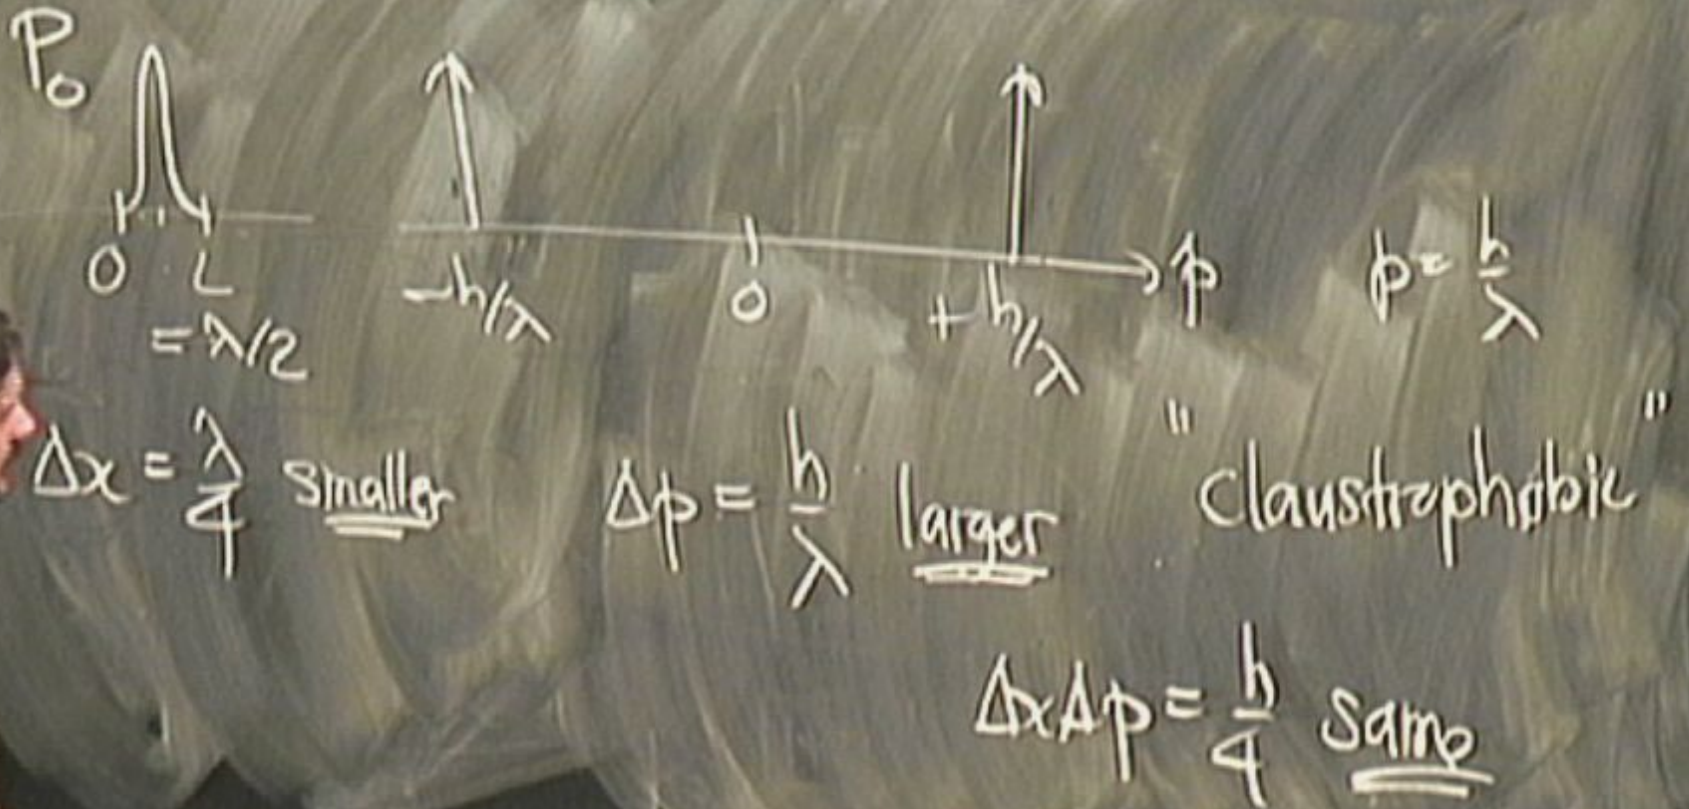 P₀
0 L -h/λ 0 +h/λ p p = h/λ
= λ/2
Δx = λ/4 smaller Δp = h/λ larger "claustrophobic"
ΔxΔp = h/4 same